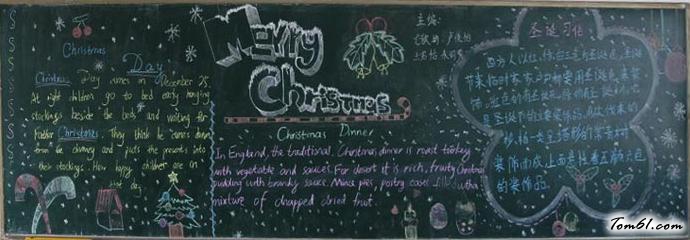 Christmas
Day
Christmas Day comes in December 25
At night children go to bed early hanging
stockings beside the beds and waiting for
Father Christmas. They think he comes down
from the chimney and puts the presents into
their stockings. How happy children are in
that day.
Merry
Christmas
主编:
Christmas Dinner
In England, the traditional Christmas dinner is roast turkey
with vegetable and sauces. For desert it is rich, fruity Christmas
pudding with brandy sauce. Mince pies, pastry cases filled with a
mixture of chopped dried fruit.
圣诞习俗
西方人以红、绿、白三色为圣诞色,圣诞
节来临时家家户户都要用圣诞色来装
饰。红色的有圣诞花
是圣诞节的主要装饰品
杉、柏一类呈塔形的常青树
装饰而成。上面悬挂着五颜六色
的装饰品
Tom61.com